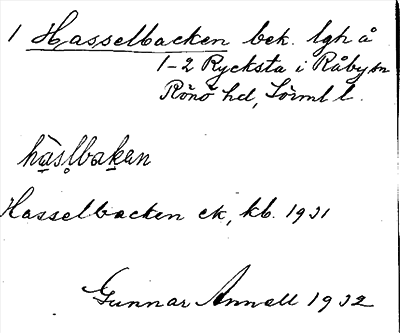 1 Hasselbacken bek. lgh å
1-2 Rycksta i Råby sn
Rönö hd, Sörml l.
hàslbakən
Hasselbacken ek, kb. 1931
Gunnar Annell 1932